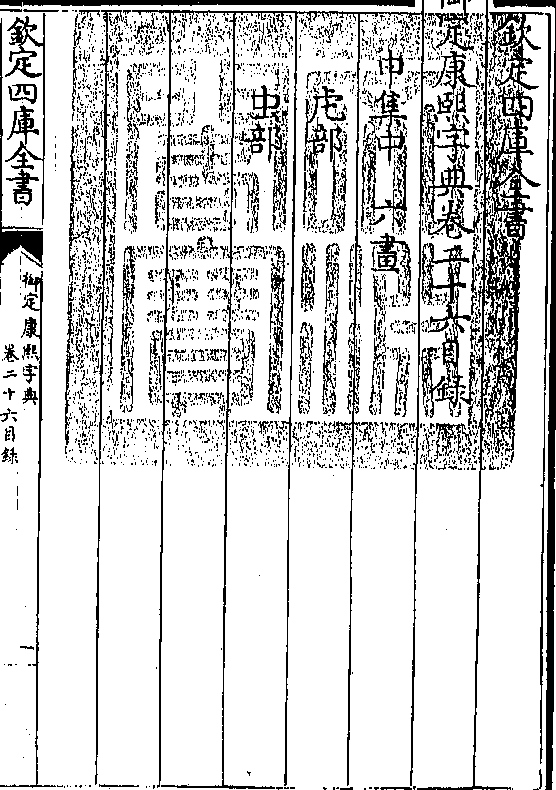 欽定四庫全書
御定康熙字典卷二十六目錄
申集中 六畫
虍部
虫部
欽定四庫全書
御定康熙字典
卷二十六目錄
一